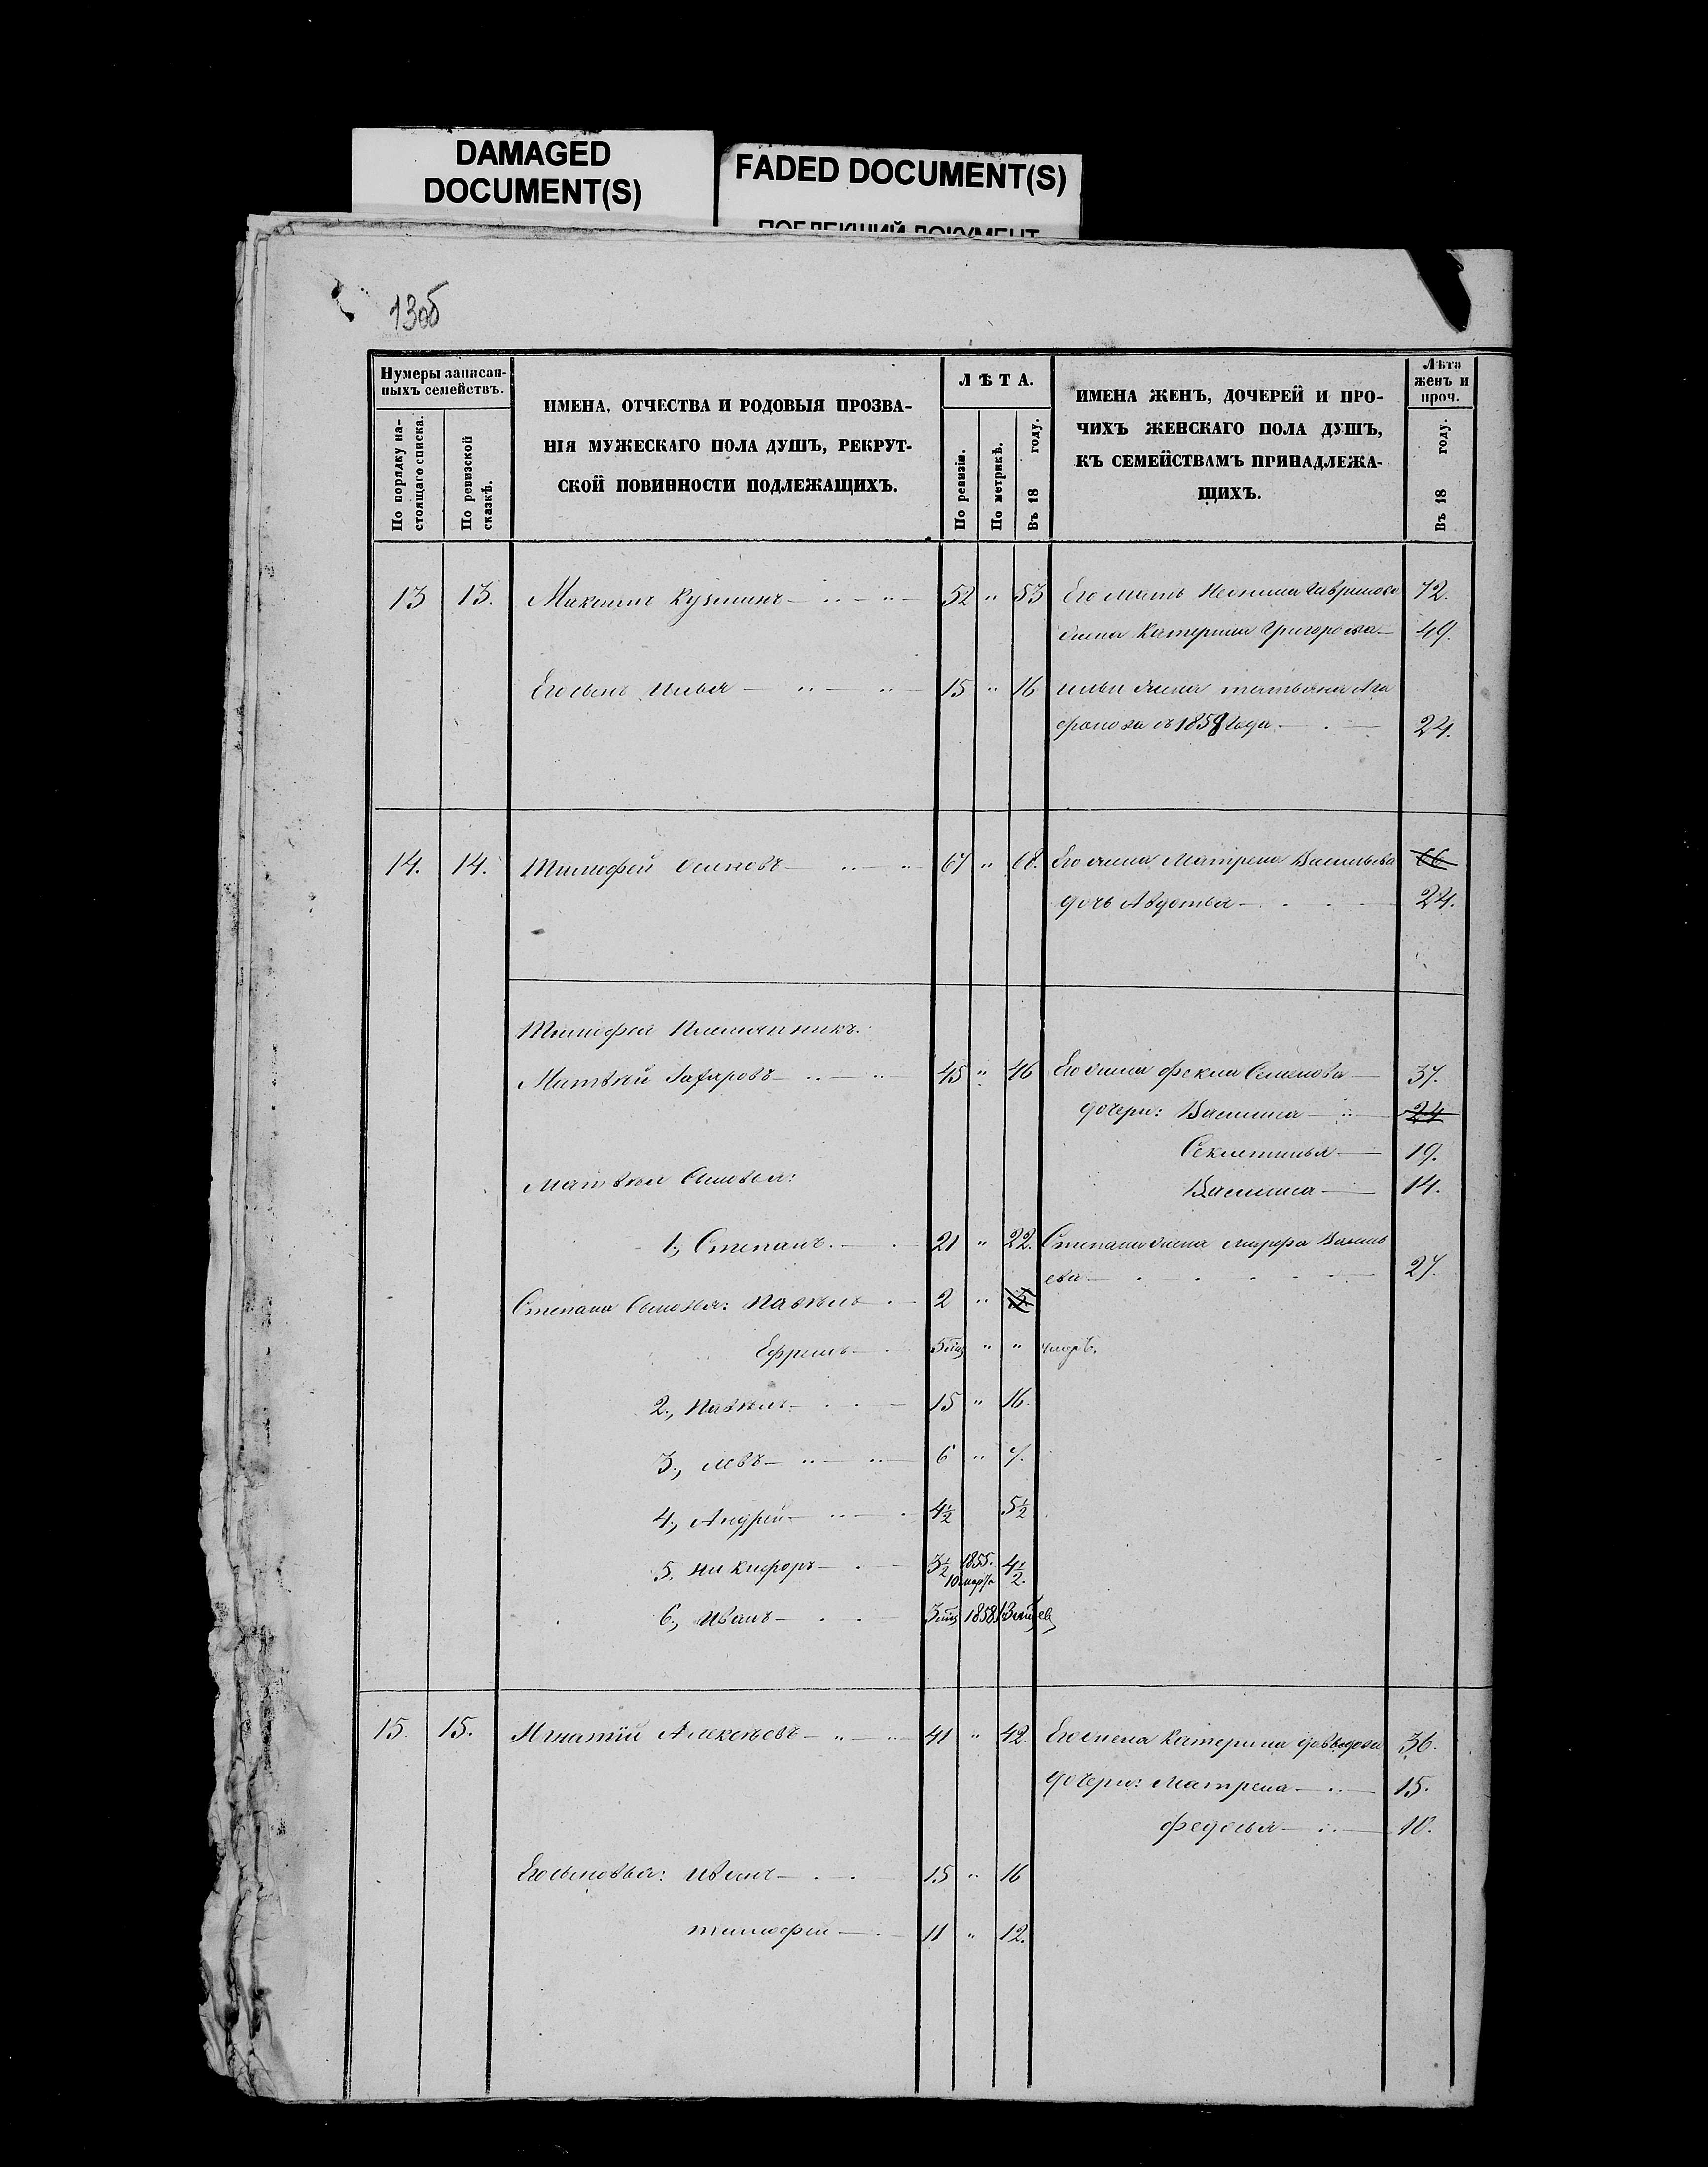 DAMAGED
DOCUMENT(S)
FADED DOCUMENT(S)
ПОБЛЕКШИЙ ДОКУМЕНТ
13об
Нумеры записан-
ныхъ семействъ.
По порядку на-
стоящаго списка.
По ревизской
сказкѣ.
ИМЕНА, ОТЧЕСТВА И РОДОВЫЯ ПРОЗВА-
НІЯ МУЖЕСКАГО ПОЛА ДУШЪ, РЕКРУТ-
СКОЙ ПОВИННОСТИ ПОДЛЕЖАЩИХЪ.
ЛѢТА.
По ревизіи.
По метрикѣ.
Въ 18 году.
ИМЕНА ЖЕНЪ, ДОЧЕРЕЙ И ПРО-
ЧИХЪ ЖЕНСКАГО ПОЛА ДУШЪ,
КЪ СЕМЕЙСТВАМЪ ПРИНАДЛЕЖА-
ЩИХЪ.
Лѣта
женъ и
проч.
Въ 18 году.
13 13. Максимъ Кузминъ 52 " 53 Его мать Неонила Гаврилова 72.
жена Катерина Григорьева 49.
Его сынъ Илья 15 " 16 Ильи жена Татьяна Ага
фонова съ 1858 года 24.
14. 14. Тимофей Осиповъ 67 " 68. Его жена Матрена Васильева 66
дочь Авдотья 24.
Тимофея Племянникъ:
Матвѣй Захаровъ 45 " 46 Его жена Фекла Семенова 37.
дочери: Василиса 24
Секлетинья 19.
Матвѣя Сыновья: Василиса 14.
1., Степанъ. 21 " 22. Степана жена Василь
ева 27.
Степана Сыновья: Павелъ 2 " 3
Ефремъ 5 мц " " умеръ.
2., Павелъ 15 " 16.
3., Левъ 6 " 7.
4., Андрей 4½ 5½
5. Никифоръ 3½ 1855. 10 марта 4½.
6., Иванъ 3 мц 1858 13 мцев
15. 15. Игнатій Алексѣевъ 41 " 42. Его жена Катерина Давыдова 36.
дочери: Матрена 15.
Федосья 10.
Его сыновья: Иванъ 15 " 16
Тимофей 11 " 12.